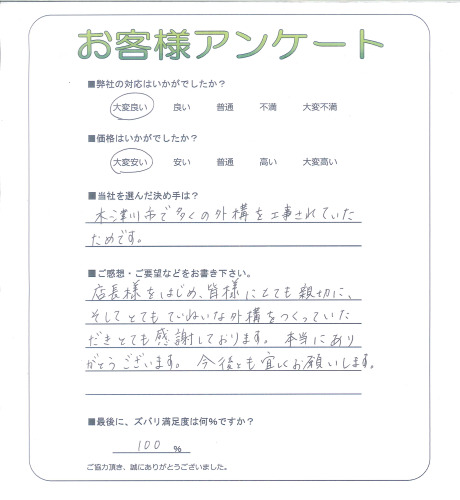 お客様アンケート
■弊社の対応はいかがでしたか？
大変良い 良い 普通 不満 大変不満
■価格はいかがでしたか？
大変安い 安い 普通 高い 大変高い
■当社を選んだ決め手は？
木津川市で多くの外構を工事されていた
ためです。
■ご感想・ご要望などをお書き下さい。
店長様をはじめ、皆様にとても親切に、
そしてとてもていねいな外構をつくっていた
だきとても感謝しております。本当にあり
がとうございます。今後とも宜しくお願いします。
■最後に、ズバリ満足度は何％ですか？
100 %
ご協力頂き、誠にありがとうございました。